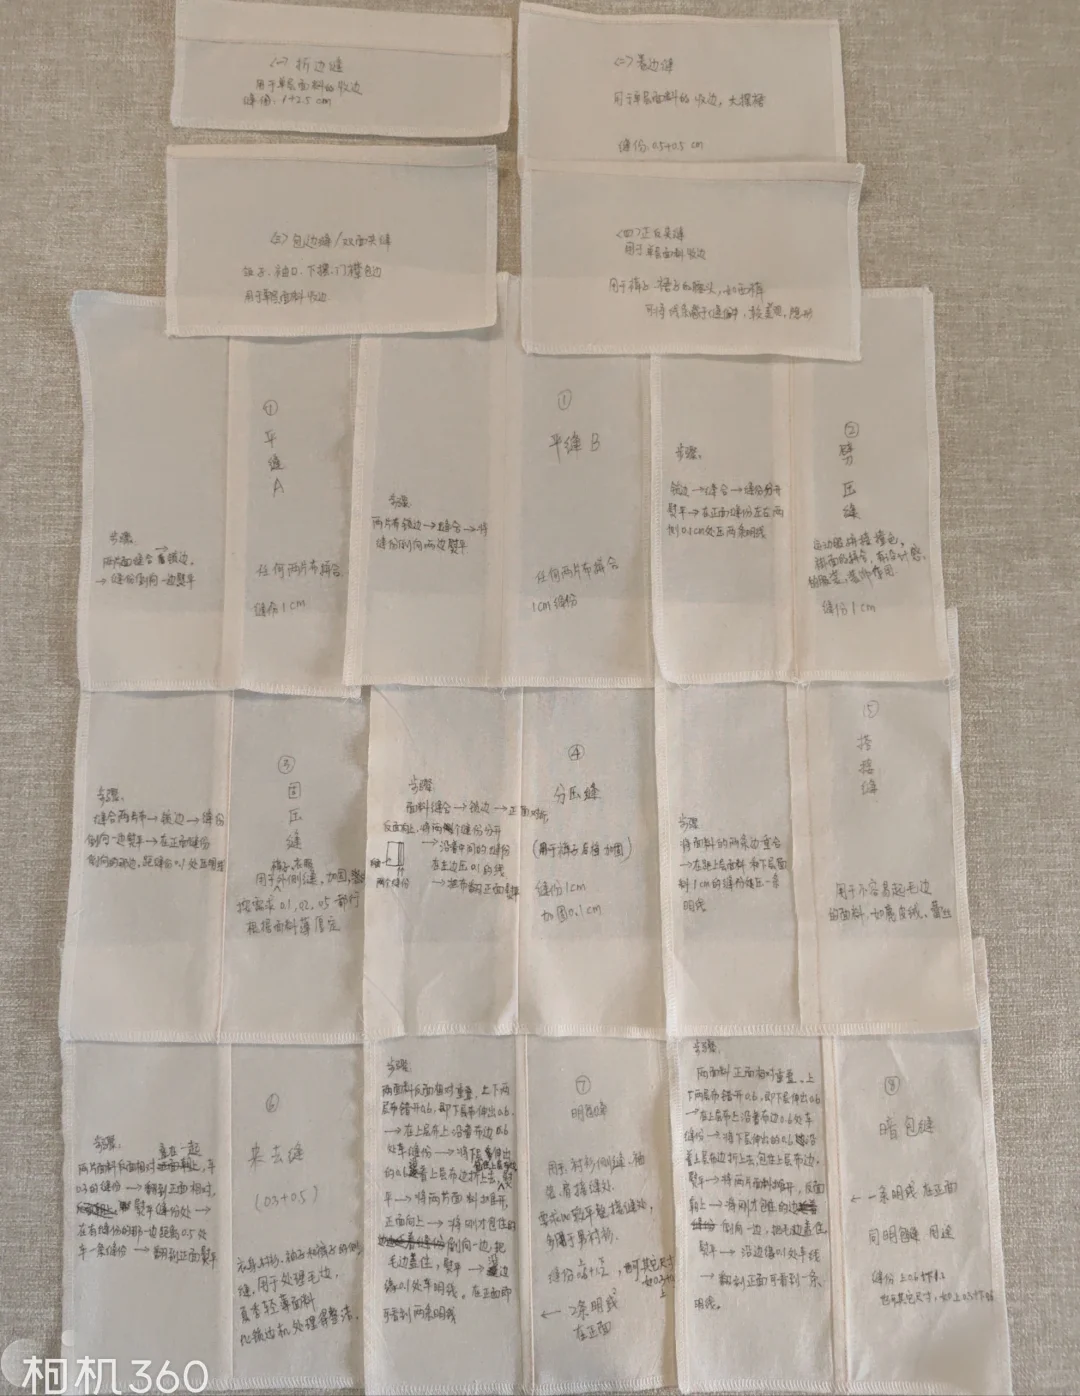 <一> 折边缝
用于单层面料的收边
缝份: 1+2.5 cm
<二> 卷边缝
用于单层面料的收边, 大摆裙
缝份: 0.5+0.5 cm
<三> 包边缝/双面夹缝
袖口、下摆、门襟包边
用于单层面料收边
<四> 正反夹缝
用于单层面料收边
用于裤子、裙子的腰头, 如西裤
①
平
缝
A
步骤:
→ 缝份倒向一边熨平
任何两片布拼合
缝份 1 cm
①
平缝 B
步骤:
两片布锁边→缝合→将
缝份倒向两边熨平
任何两片布拼合
1cm 缝份
②
劈
压
缝
步骤:
锁边→缝合→缝份分开
熨平→在正面缝份左右两
侧0.1cm处压两条明线
缝份 1 cm
③
固
压
缝
步骤:
缝合两片布→锁边→缝份
倒向一边熨平→在正面缝份
裤子、衣服
用于外侧缝, 加固,
按需求 0.1, 0.2, 0.5 都行
根据面料薄厚定
④
分压缝
步骤:
面料缝合→锁边→正面对折,
反面向上, 将两个缝份分开
→沿着中间的缝份
在左边压0.1的线
两个缝份
(用于裤子后裆加固)
缝份1cm
加固0.1cm
⑤
搭
接
缝
步骤
将面料的两条边重合
→在距上层面料和下层面
料1cm的缝份处压一条
明线
用于不容易起毛边
的面料,
⑥
来去缝
(0.3+0.5)
步骤: 重在一起
0.3的缝份→翻到正面相对,
熨平缝份处→
在有缝份的那一边距离0.5处
车一条缝份→翻到正面熨平
缝, 用于处理毛边,
夏季轻薄面料
比锁边机处理得整洁.
⑦
明包缝
步骤:
两面料反面相对重叠, 上下两
层布错开0.6, 即下层布伸出0.6
→在上层布上沿着布边0.6
处车缝份→将下层伸出
平→将两片面料打开,
正面向上→将刚才包住的
倒向一边, 把
毛边盖住, 熨平→沿边
缘0.1处车明线. 在正面即
可看到两条明线
用于: 衬衫侧缝、袖
多属于男衬衫.
← 2条明线
在正面
⑧
暗包缝
步骤:
两面料正面相对重叠. 上
下两层布错开0.6, 即下层伸出0.6
→在上层布上沿着布边0.6处车
缝份→将下层伸出的0.6沿
着上层布边折上去, 包住上层布边.
熨平→将两片面料打开, 反面
朝上→将刚才包住的
倒向一边, 把毛边盖住,
熨平→沿边缘0.1处车线
→翻到正面可看到一条
明线.
← 一条明线 在正面
同明包缝 用途
相机360